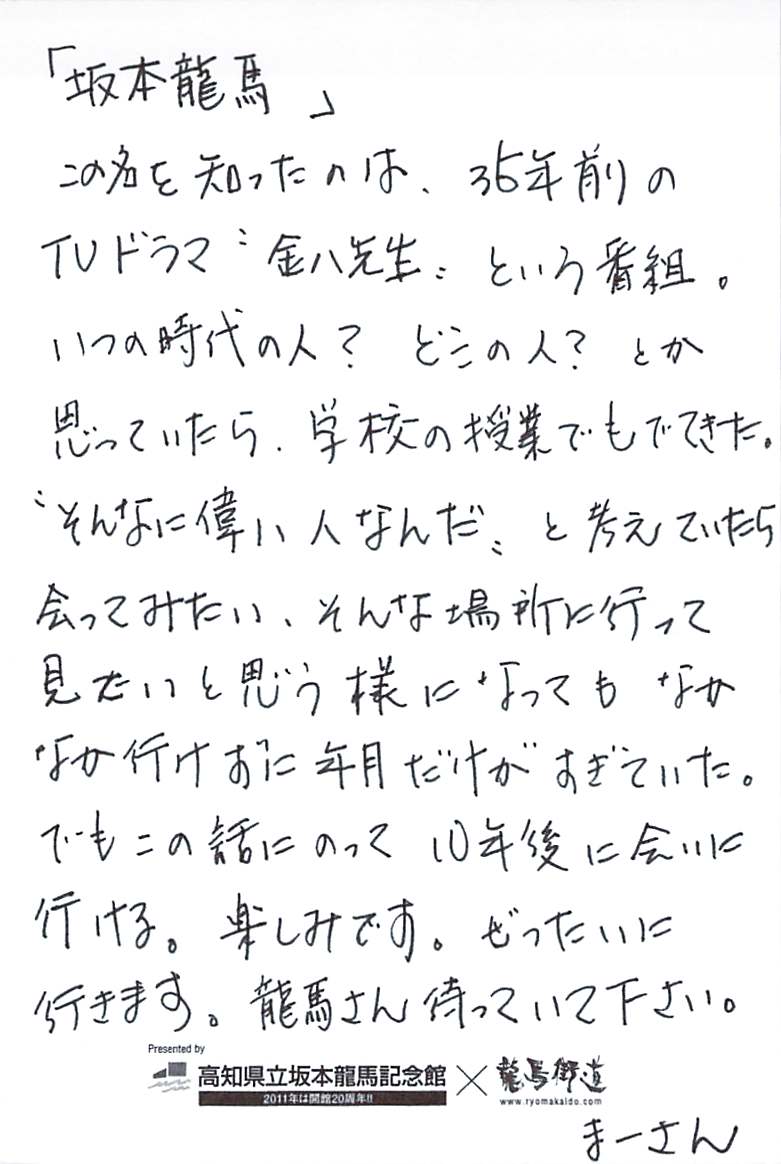 「坂本龍馬」
この名を知ったのは、35年前の
TVドラマ〝金八先生〟という番組。
いつの時代の人? どこの人? とか
思っていたら、学校の授業でもでてきた。
〝そんなに偉い人なんだ〟と考えていたら
会ってみたい、そんな場所に行って
見たいと思う様になっても なか
なか行けずに年月だけがすぎていた。
でもこの話にのって 10年後に会いに
行ける。楽しみです。ぜったいに
行きます。龍馬さん待っていて下さい。
Presented by
高知県立坂本龍馬記念館 × 龍馬街道
2011年は開館20周年!!
www.ryomakaido.com
まーさん